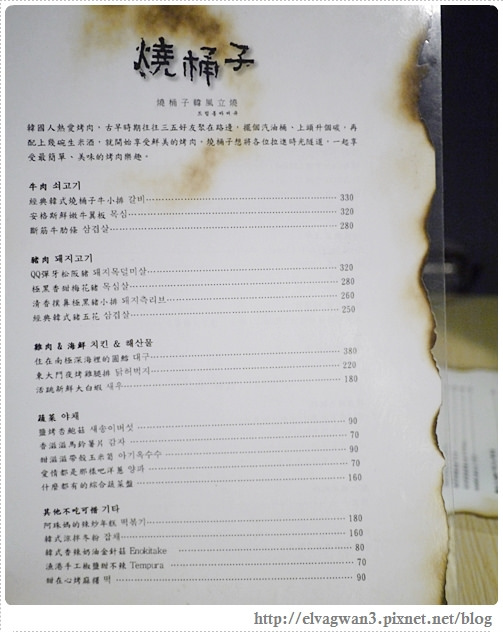 燒桶子
燒桶子韓風立燒
드럼통바베큐
韓國人熱愛烤肉，古早時期往往三五好友聚在路邊，擺個汽油桶，上頭升個碳，再
配上幾碗生米酒，就開始享受鮮美的烤肉。燒桶子想將各位拉進時光隧道，一起享
受最簡單、美味的烤肉樂趣。
牛肉 쇠고기
經典韓式燒桶子牛小排 갈비 330
安格斯鮮嫩牛翼板 목심 320
斷筋牛肋條 삼겹살 280
豬肉 돼지고기
QQ彈牙松阪豬 돼지목덜미살 320
極黑香甜梅花豬 목심살 280
清香撲鼻極黑豬小排 돼지쪽리브 260
經典韓式豬五花 삼겹살 250
雞肉 & 海鮮 치킨 & 해산물
住在南極深海裡的圓鱈 대구 380
東大門夜烤雞腿排 닭허벅지 220
活跳新鮮大白蝦 새우 180
蔬菜 야채
鹽烤杏鮑菇 새송이버섯 90
香滋滋馬鈴薯片 감자 70
甜滋滋帶殼玉米筍 아기옥수수 90
愛情都是那樣吧洋蔥 양파 70
什麼都有的綜合蔬菜盤 160
其他不吃可惜 기타
阿珠媽的辣炒年糕 떡볶기 180
韓式涼拌冬粉 잡채 160
韓式香辣奶油金針菇 Enokitake 80
漁港手工椒鹽甜不辣 Tempura 70
甜在心烤麻糬 떡 90
http://elvagwan3.pixnet.net/blog